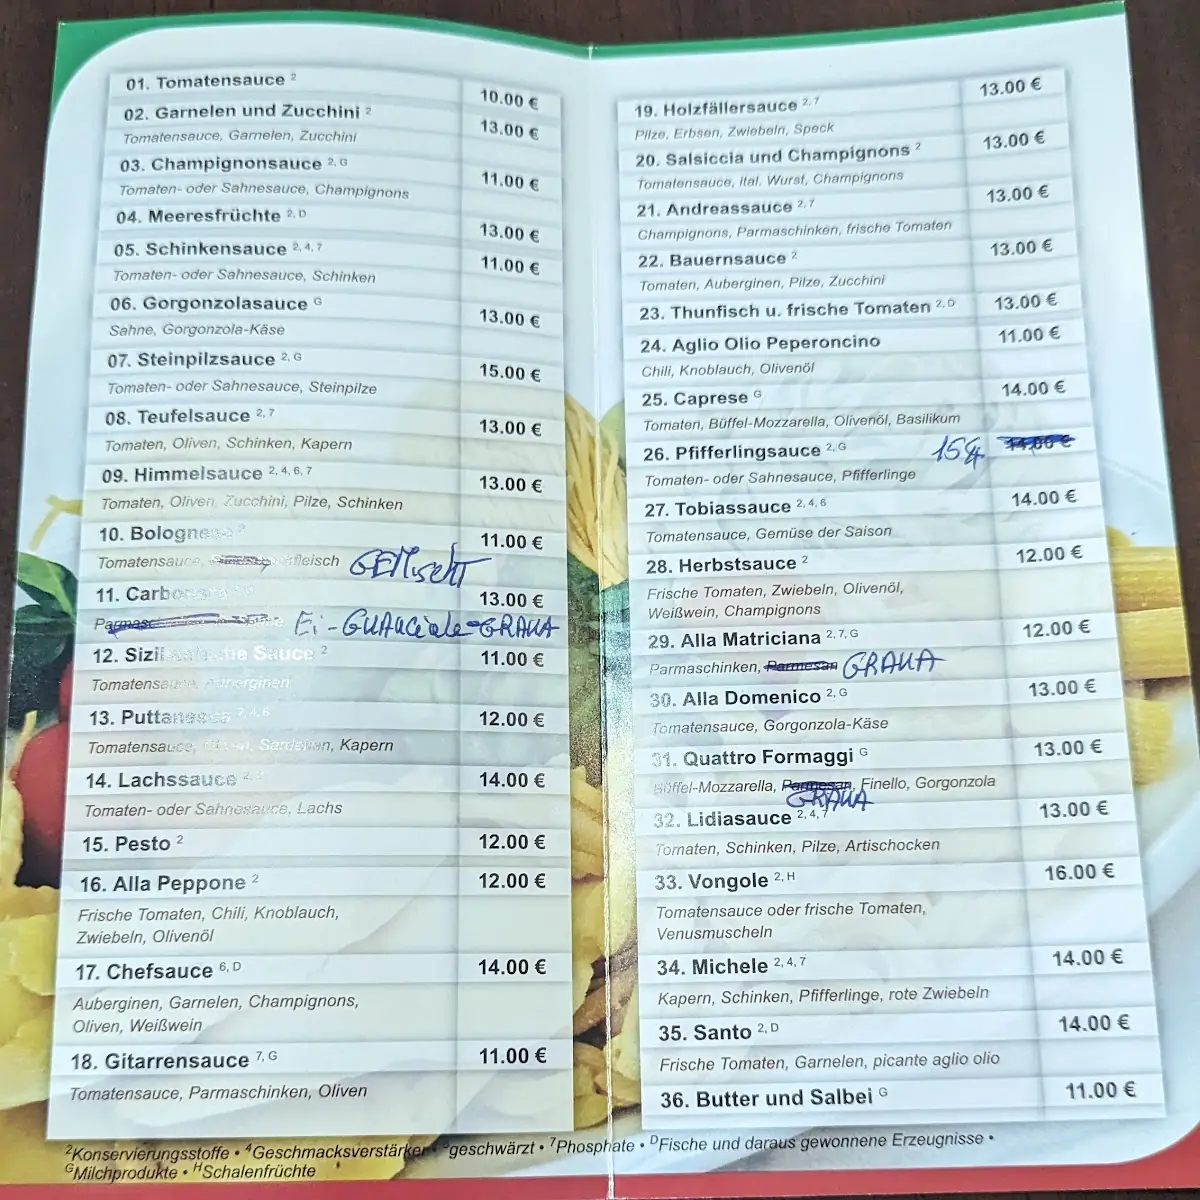 01. Tomatensauce 2 10.00 €
02. Garnelen und Zucchini 2 13.00 €
Tomatensauce, Garnelen, Zucchini
03. Champignonsauce 2, G 11.00 €
Tomaten- oder Sahnesauce, Champignons
04. Meeresfrüchte 2, D 13.00 €
05. Schinkensauce 2, 4, 7 11.00 €
Tomaten- oder Sahnesauce, Schinken
06. Gorgonzolasauce G 13.00 €
Sahne, Gorgonzola-Käse
07. Steinpilzsauce 2, G 15.00 €
Tomaten- oder Sahnesauce, Steinpilze
08. Teufelsauce 2, 7 13.00 €
Tomaten, Oliven, Schinken, Kapern
09. Himmelsauce 2, 4, 6, 7 13.00 €
Tomaten, Oliven, Zucchini, Pilze, Schinken
10. Bolognese 2 11.00 €
Tomatensauce, GEMischT
11. Carbonara 13.00 €
Ei - GUANCiale - GRANA
12. Sizilianische Sauce 2 11.00 €
Tomatensauce, Auberginen
13. Puttanesca 2, 4, 6 12.00 €
Tomatensauce, Oliven, Sardellen, Kapern
14. Lachssauce 2, 14.00 €
Tomaten- oder Sahnesauce, Lachs
15. Pesto 2 12.00 €
16. Alla Peppone 2 12.00 €
Frische Tomaten, Chili, Knoblauch,
Zwiebeln, Olivenöl
17. Chefsauce 6, D 14.00 €
Auberginen, Garnelen, Champignons,
Oliven, Weißwein
18. Gitarrensauce 7, G 11.00 €
Tomatensauce, Parmaschinken, Oliven
19. Holzfällersauce 2, 7 13.00 €
Pilze, Erbsen, Zwiebeln, Speck
20. Salsiccia und Champignons 2 13.00 €
Tomatensauce, Ital. Wurst, Champignons
21. Andreassauce 2, 7 13.00 €
Champignons, Parmaschinken, frische Tomaten
22. Bauernsauce 2 13.00 €
Tomaten, Auberginen, Pilze, Zucchini
23. Thunfisch u. frische Tomaten 2, D 13.00 €
24. Aglio Olio Peperoncino 11.00 €
Chili, Knoblauch, Olivenöl
25. Caprese G 14.00 €
Tomaten, Büffel-Mozzarella, Olivenöl, Basilikum
26. Pfifferlingsauce 2, G 15€ 14.00 €
Tomaten- oder Sahnesauce, Pfifferlinge
27. Tobiassauce 2, 4, 6 14.00 €
Tomatensauce, Gemüse der Saison
28. Herbstsauce 2 12.00 €
Frische Tomaten, Zwiebeln, Olivenöl,
Weißwein, Champignons
29. Alla Matriciana 2, 7, G 12.00 €
Parmaschinken, Parmesan GRANA
30. Alla Domenico 2, G 13.00 €
Tomatensauce, Gorgonzola-Käse
31. Quattro Formaggi G 13.00 €
Büffel-Mozzarella, Parmesan, Finello, Gorgonzola
GRANA
32. Lidiasauce 2, 4, 7 13.00 €
Tomaten, Schinken, Pilze, Artischocken
33. Vongole 2, H 16.00 €
Tomatensauce oder frische Tomaten,
Venusmuscheln
34. Michele 2, 4, 7 14.00 €
Kapern, Schinken, Pfifferlinge, rote Zwiebeln
35. Santo 2, D 14.00 €
Frische Tomaten, Garnelen, picante aglio olio
36. Butter und Salbei G 11.00 €
2Konservierungsstoffe • 4Geschmacksverstärker • 6geschwärzt • 7Phosphate • DFische und daraus gewonnene Erzeugnisse •
GMilchprodukte • HSchalenfrüchte